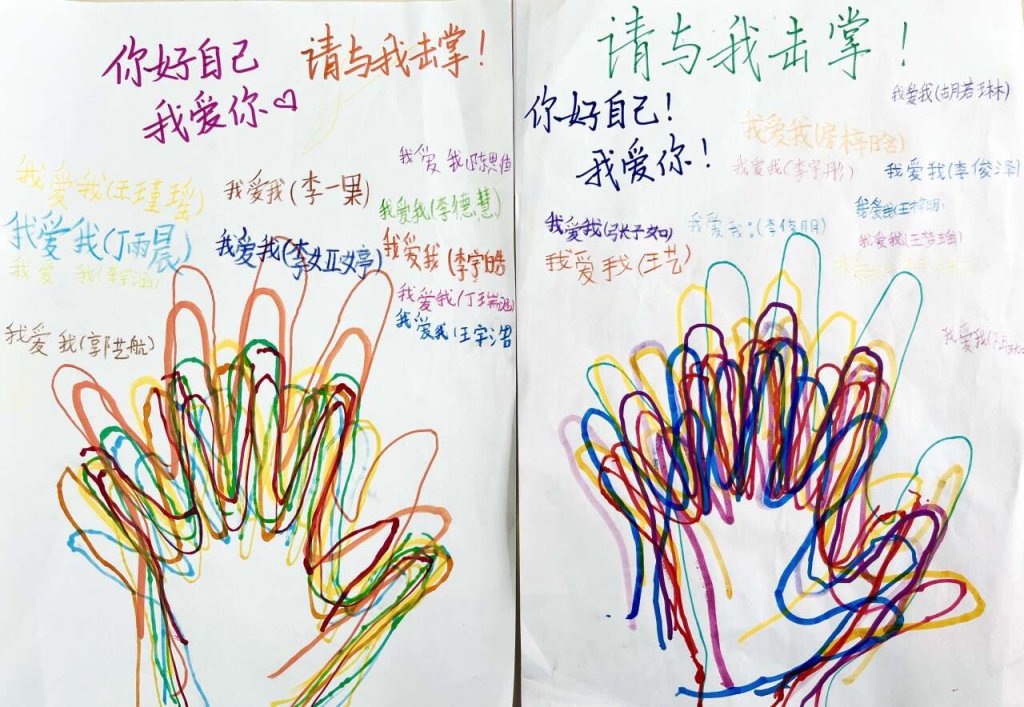 你好自己
我爱你♡
请与我击掌！
我爱我(王瑾瑶)
我爱我(李一果)
我爱我(李德慧)
我爱我(丁雨晨)
我爱我(李亚婷)
我爱我(李宇皓)
我爱我
我爱我(丁瑞涵)
我爱我(王宇浩)
我爱我(郭艺航)
请与我击掌！
你好自己！
我爱你！
我爱我(胡若琳)
我爱我(房梓晗)
我爱我(李宇彤)
我爱我(李俊泽)
我爱我(张子如)
我爱我(李俊朋)
我爱我(王梓明)
我爱我(王艺)
我爱我(王梦瑶)
我爱我